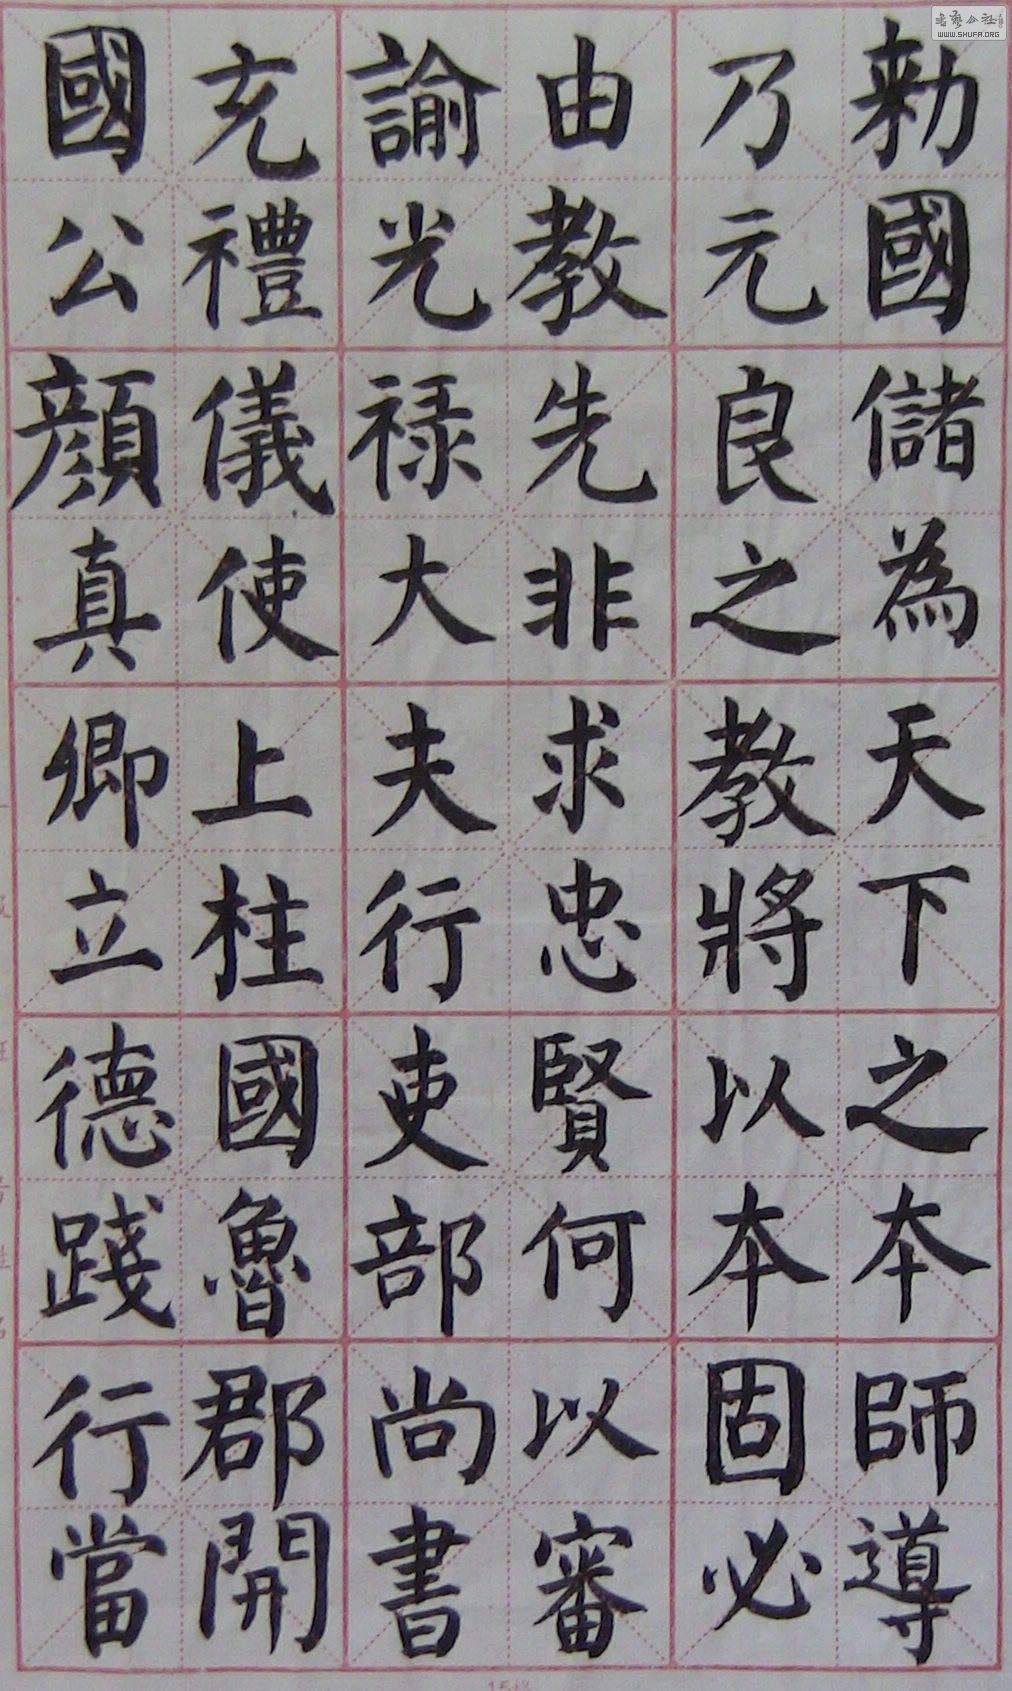 勑國儲為天下之本師導
乃元良之教將以本固必
由教先非求忠賢何以審
諭光禄大夫行吏部尚書
充禮儀使上柱國魯郡開
國公顔真卿立德踐行當
WWW.SHUFA.ORG